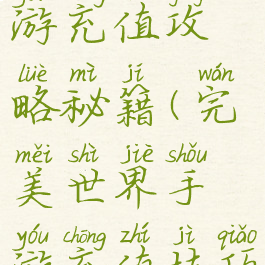 游充值攻
lüè mì jí wán
略秘籍(完
měi shì jiè shǒu
美世界手
yóu chōng zhí jì qiǎo
游充值技巧